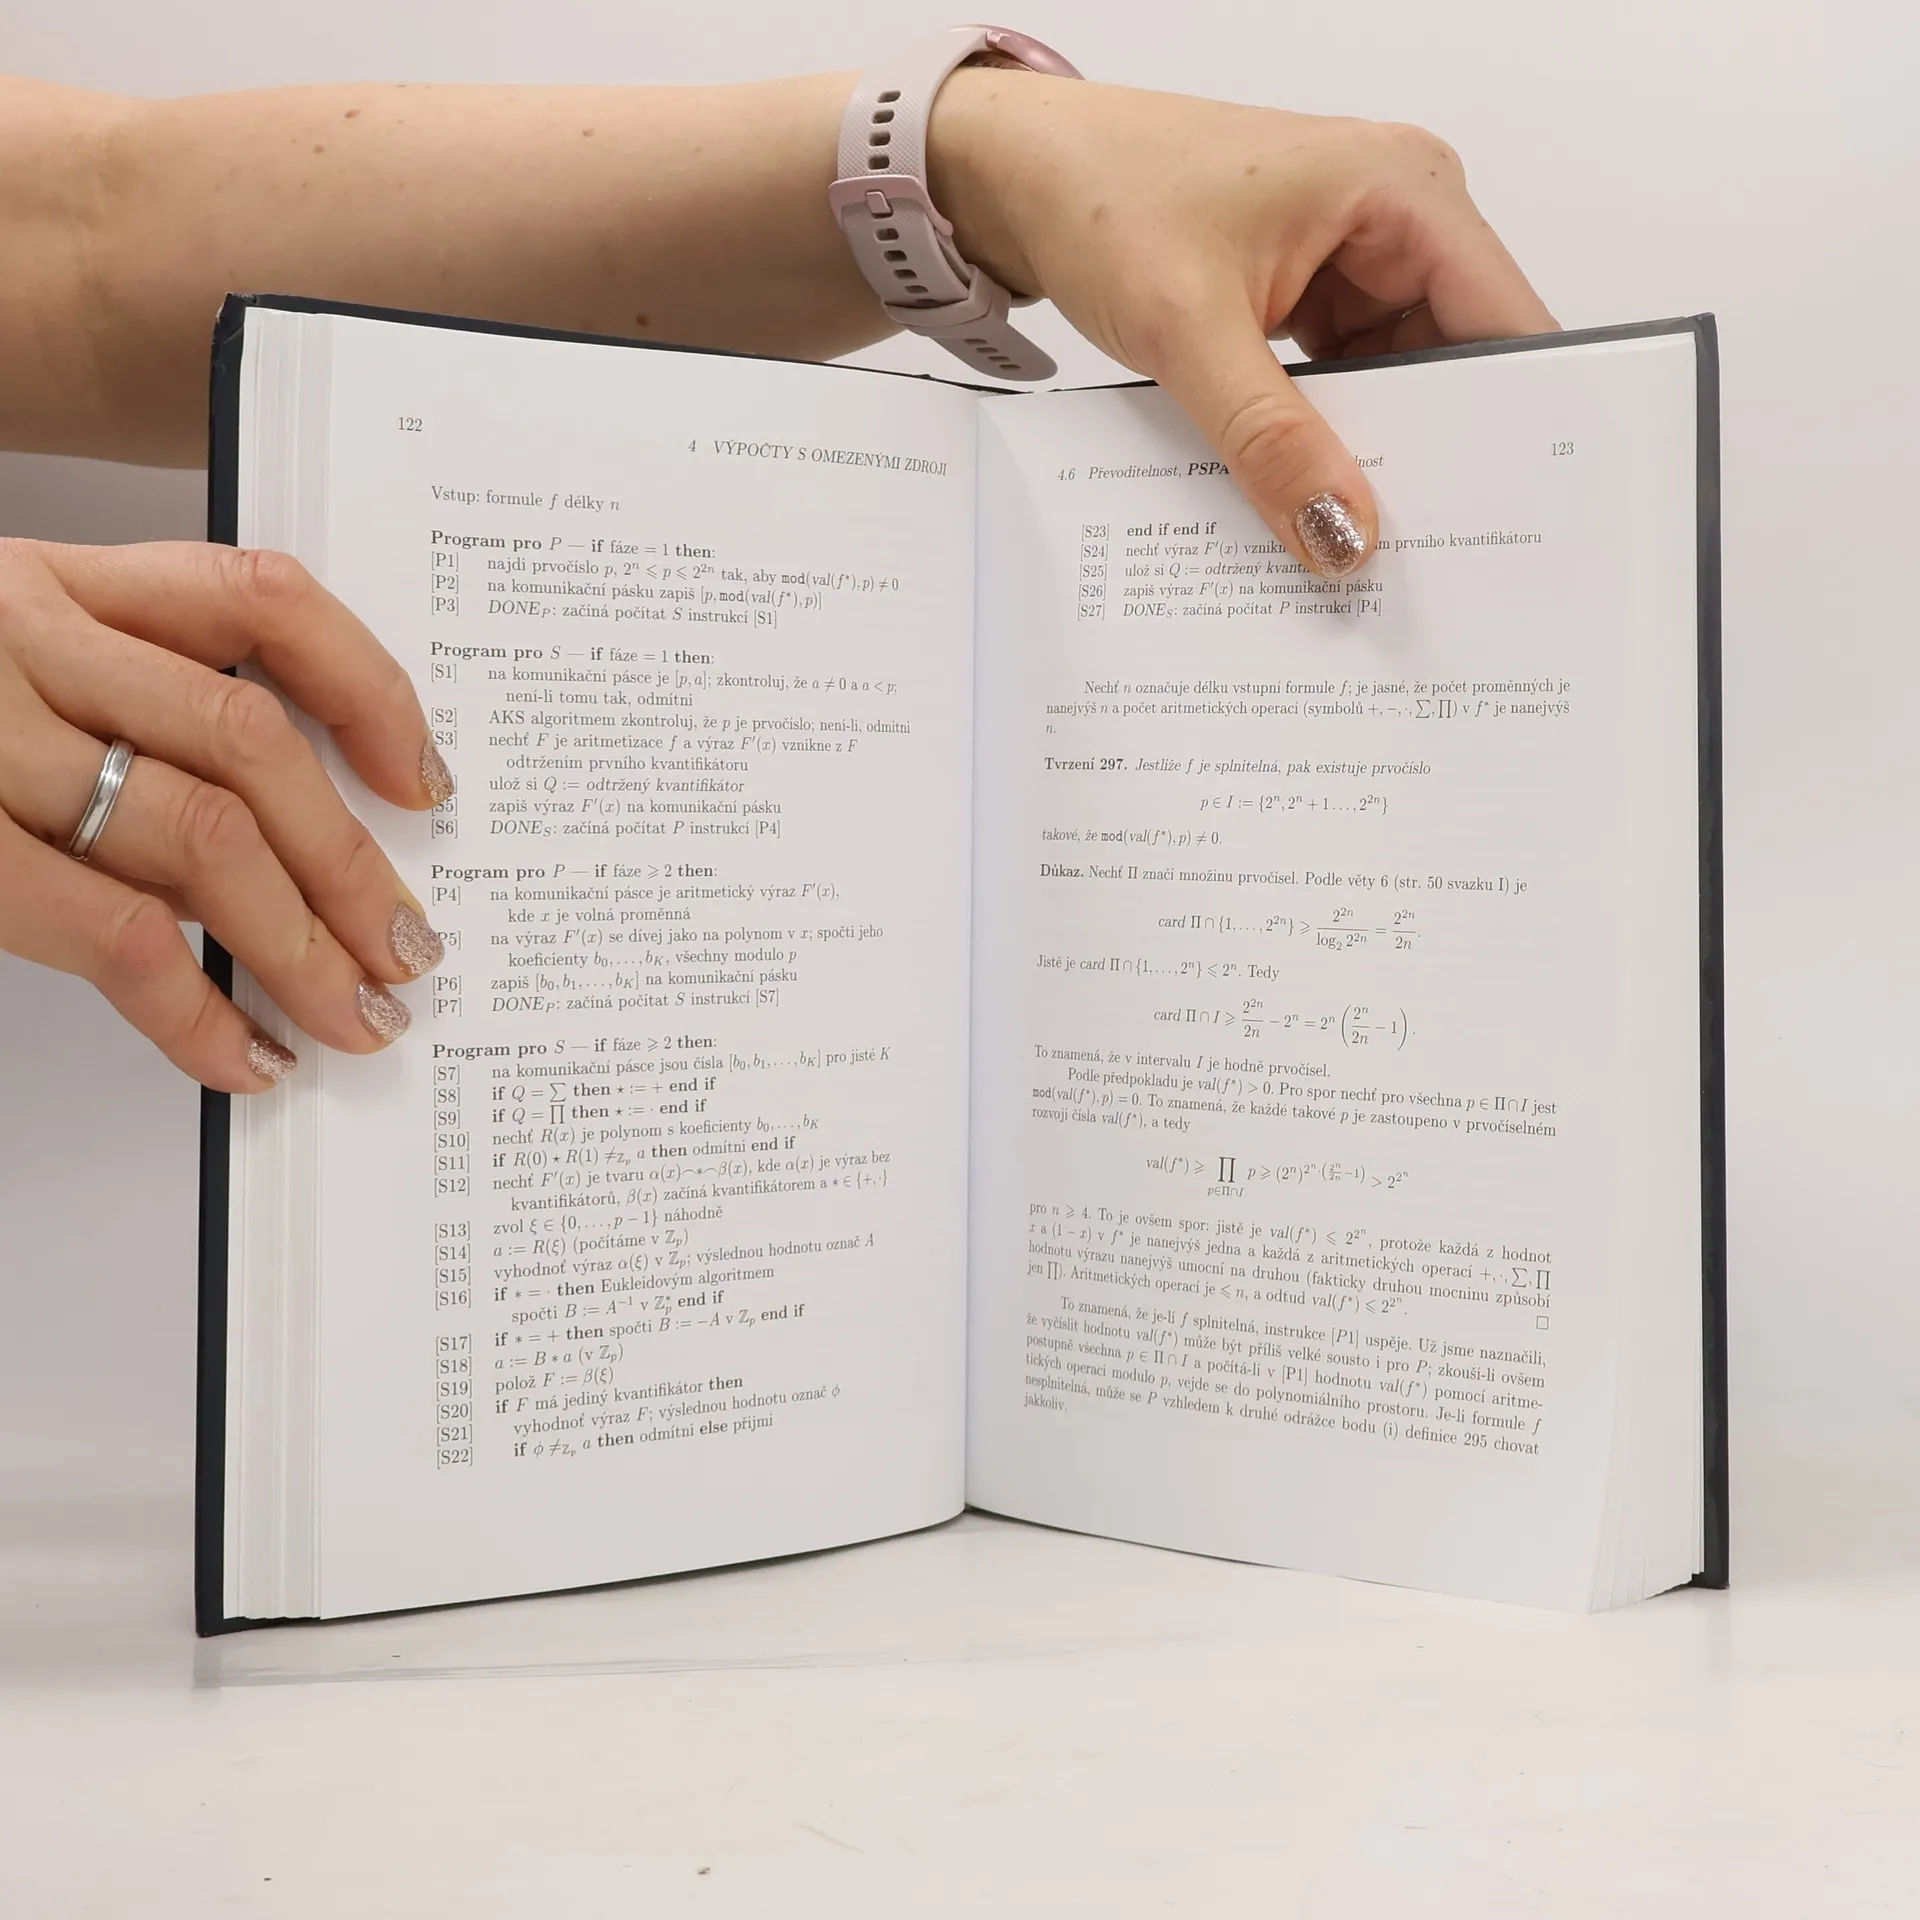 122
4 VÝPOČTY S OMEZENÝMI ZDROJI
Vstup: formule f délky n
Program pro P — if fáze = 1 then:
[P1] najdi prvočíslo p, 2ⁿ ⩽ p ⩽ 2²ⁿ tak, aby mod(val(f*), p) ≠ 0
[P2] na komunikační pásku zapiš [p, mod(val(f*), p)]
[P3] DONE_P: začíná počítat S instrukcí [S1]
Program pro S — if fáze = 1 then:
[S1] na komunikační pásce je [p, a]; zkontroluj, že a ≠ 0 a a < p;
není-li tomu tak, odmítni
[S2] AKS algoritmem zkontroluj, že p je prvočíslo; není-li, odmítni
S3] nechť F je aritmetizace f a výraz F′(x) vznikne z F
odtržením prvního kvantifikátoru
] ulož si Q := odtržený kvantifikátor
S5] zapiš výraz F′(x) na komunikační pásku
[S6] DONE_S: začíná počítat P instrukcí [P4]
Program pro P — if fáze ⩾ 2 then:
[P4] na komunikační pásce je aritmetický výraz F′(x),
kde x je volná proměnná
P5] na výraz F′(x) se dívej jako na polynom v x; spočti jeho
koeficienty b₀, . . . , b_K, všechny modulo p
[P6] zapiš [b₀, b₁, . . . , b_K] na komunikační pásku
[P7] DONE_P: začíná počítat S instrukcí [S7]
Program pro S — if fáze ⩾ 2 then:
[S7] na komunikační pásce jsou čísla [b₀, b₁, . . . , b_K] pro jisté K
[S8] if Q = ∑ then ⋆ := + end if
[S9] if Q = ∏ then ⋆ := · end if
[S10] nechť R(x) je polynom s koeficienty b₀, . . . , b_K
[S11] if R(0) ⋆ R(1) ≠_{ℤ_p} a then odmítni end if
[S12] nechť F′(x) je tvaru α(x)⌢*⌢β(x), kde α(x) je výraz bez
kvantifikátorů, β(x) začíná kvantifikátorem a * ∈ {+, ·}
[S13] zvol ξ ∈ {0, . . . , p − 1} náhodně
[S14] a := R(ξ) (počítáme v ℤ_p)
[S15] vyhodnoť výraz α(ξ) v ℤ_p; výslednou hodnotu označ A
[S16] if * = · then Eukleidovým algoritmem
spočti B := A⁻¹ v ℤ*_p end if
[S17] if * = + then spočti B := −A v ℤ_p end if
[S18] a := B * a (v ℤ_p)
[S19] polož F := β(ξ)
[S20] if F má jediný kvantifikátor then
[S21] vyhodnoť výraz F; výslednou hodnotu označ ϕ
[S22] if ϕ ≠_{ℤ_p} a then odmítni else přijmi
123
4.6 Převoditelnost, PSPA lnost
[S23] end if end if
[S24] nechť výraz F′(x) vznikn m prvního kvantifikátoru
[S25] ulož si Q := odtržený kvant
[S26] zapiš výraz F′(x) na komunikační pásku
[S27] DONE_S: začíná počítat P instrukcí [P4]
Nechť n označuje délku vstupní formule f; je jasné, že počet proměnných je
nanejvýš n a počet aritmetických operací (symbolů +, −, ·, ∑, ∏) v f* je nanejvýš
n.
Tvrzení 297. Jestliže f je splnitelná, pak existuje prvočíslo
p ∈ I := {2ⁿ, 2ⁿ + 1 . . . , 2²ⁿ}
takové, že mod(val(f*), p) ≠ 0.
Důkaz. Nechť Π značí množinu prvočísel. Podle věty 6 (str. 50 svazku I) je
card Π ∩ {1, . . . , 2²ⁿ} ⩾ 2²ⁿ / log₂ 2²ⁿ = 2²ⁿ / 2n.
Jistě je card Π ∩ {1, . . . , 2ⁿ} ⩽ 2ⁿ. Tedy
card Π ∩ I ⩾ 2²ⁿ / 2n − 2ⁿ = 2ⁿ (2ⁿ / 2n − 1).
To znamená, že v intervalu I je hodně prvočísel.
Podle předpokladu je val(f*) > 0. Pro spor nechť pro všechna p ∈ Π ∩ I jest
mod(val(f*), p) = 0. To znamená, že každé takové p je zastoupeno v prvočíselném
rozvoji čísla val(f*), a tedy
val(f*) ⩾ ∏_{p∈Π∩I} p ⩾ (2ⁿ)^{2ⁿ·(2ⁿ/2n −1)} > 2^{2ⁿ}
pro n ⩾ 4. To je ovšem spor: jistě je val(f*) ⩽ 2^{2ⁿ}, protože každá z hodnot
x a (1 − x) v f* je nanejvýš jedna a každá z aritmetických operací +, ·, ∑, ∏
hodnotu výrazu nanejvýš umocní na druhou (fakticky druhou mocninu způsobí
jen ∏). Aritmetických operací je ⩽ n, a odtud val(f*) ⩽ 2^{2ⁿ}.
□
To znamená, že je-li f splnitelná, instrukce [P1] uspěje. Už jsme naznačili,
že vyčíslit hodnotu val(f*) může být příliš velké sousto i pro P; zkouší-li ovšem
postupně všechna p ∈ Π ∩ I a počítá-li v [P1] hodnotu val(f*) pomocí aritme-
tických operací modulo p, vejde se do polynomiálního prostoru. Je-li formule f
nesplnitelná, může se P vzhledem k druhé odrážce bodu (i) definice 295 chovat
jakkoliv.